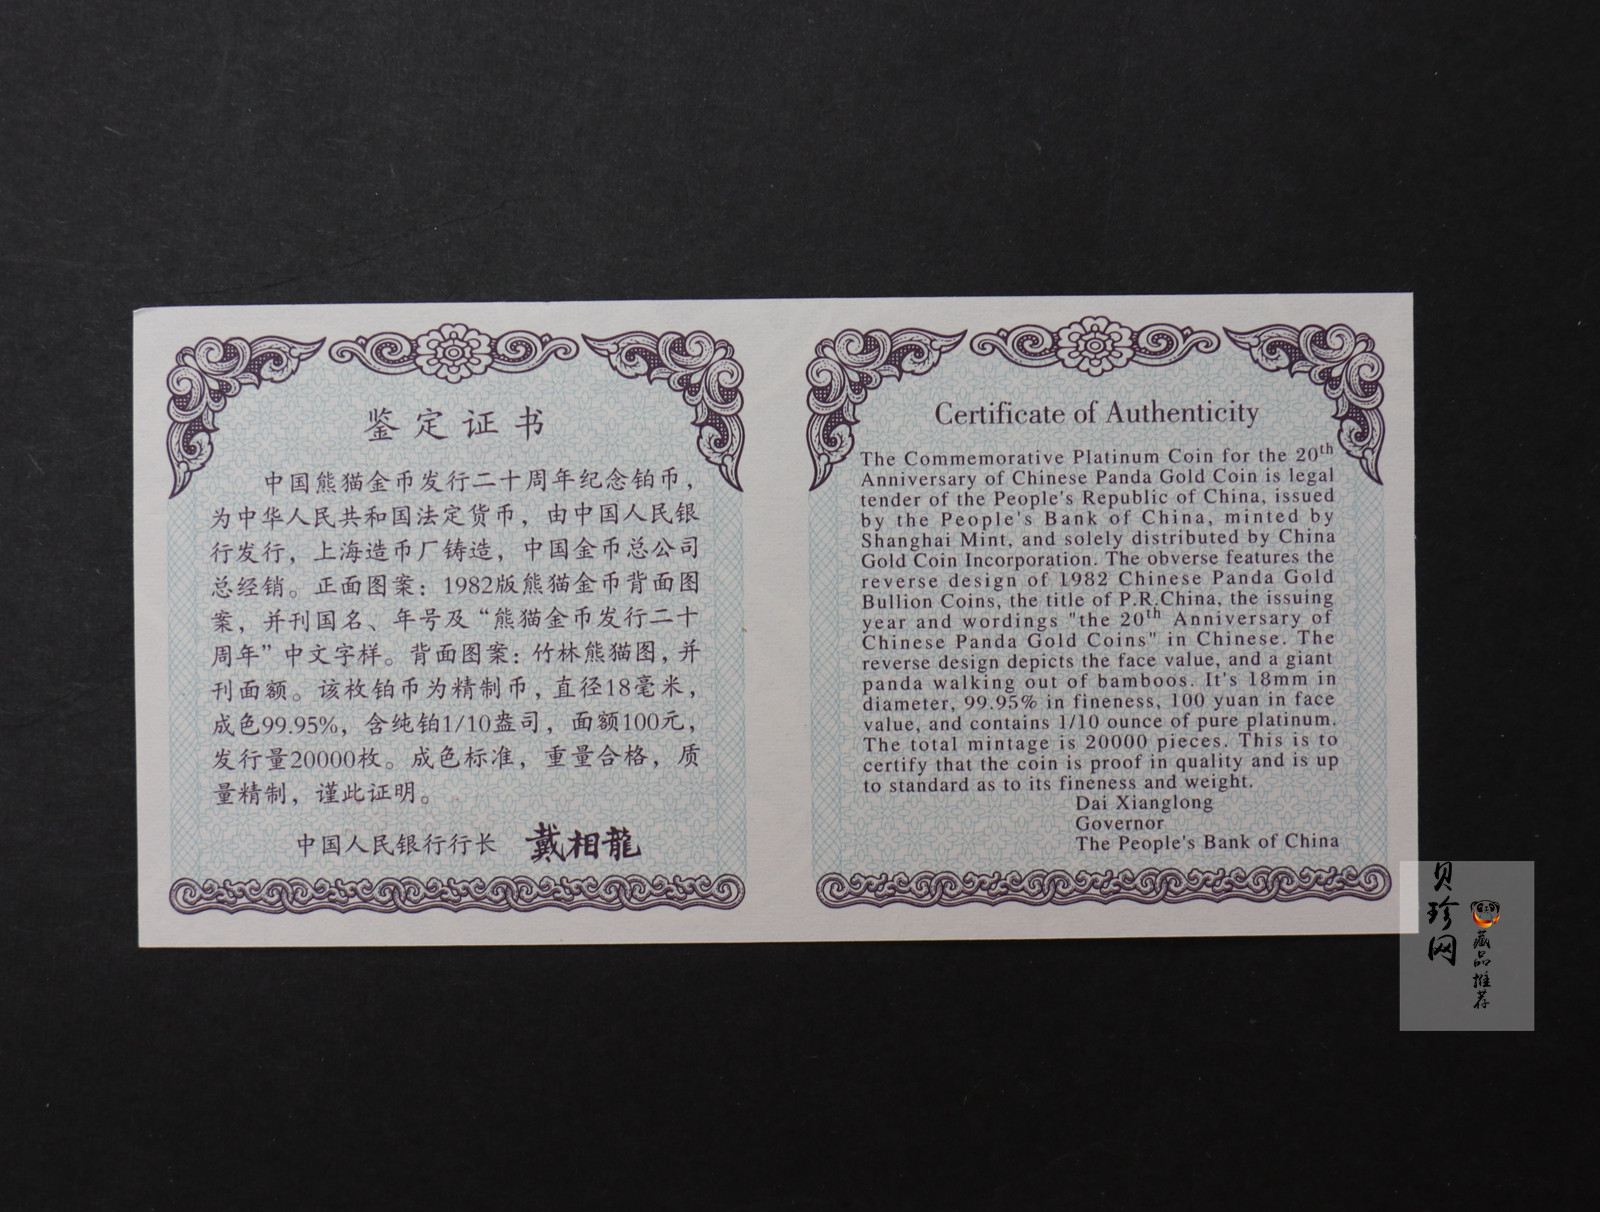 鉴定证书
中国熊猫金币发行二十周年纪念铂币，
为中华人民共和国法定货币，由中国人民银
行发行，上海造币厂铸造，中国金币总公司
总经销。正面图案：1982版熊猫金币背面图
案，并刊国名、年号及“熊猫金币发行二十
周年”中文字样。背面图案：竹林熊猫图，并
刊面额。该枚铂币为精制币，直径18毫米，
成色99.95%，含纯铂1/10盎司，面额100元，
发行量20000枚。成色标准，重量合格，质
量精制，谨此证明。
中国人民银行行长 戴相龍
Certificate of Authenticity
The Commemorative Platinum Coin for the 20th
Anniversary of Chinese Panda Gold Coin is legal
tender of the People's Republic of China, issued
by the People's Bank of China, minted by
Shanghai Mint, and solely distributed by China
Gold Coin Incorporation. The obverse features the
reverse design of 1982 Chinese Panda Gold
Bullion Coins, the title of P.R.China, the issuing
year and wordings "the 20th Anniversary of
Chinese Panda Gold Coins" in Chinese. The
reverse design depicts the face value, and a giant
panda walking out of bamboos. It's 18mm in
diameter, 99.95% in fineness, 100 yuan in face
value, and contains 1/10 ounce of pure platinum.
The total mintage is 20000 pieces. This is to
certify that the coin is proof in quality and is up
to standard as to its fineness and weight.
Dai Xianglong
Governor
The People's Bank of China
贝珍网
藏品推荐